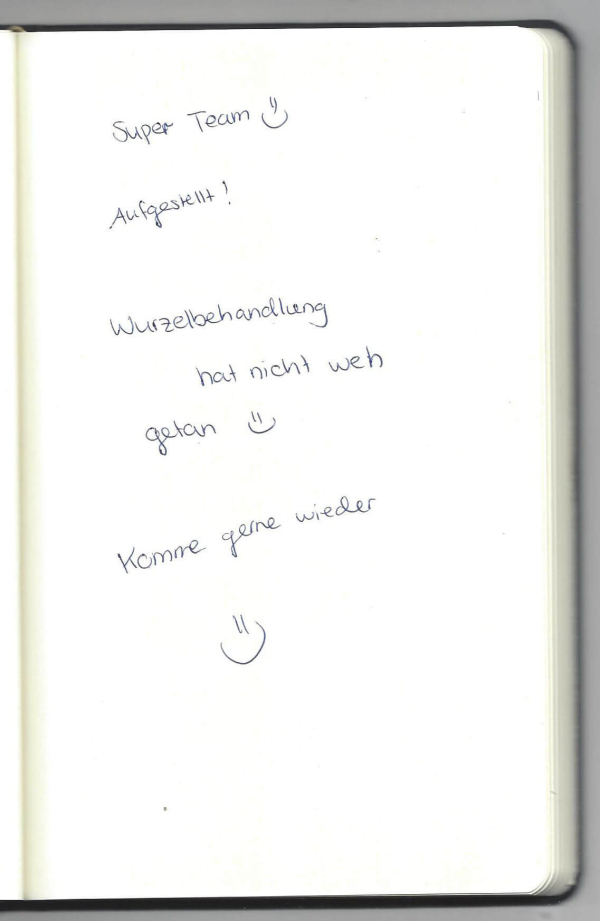 Super Team
Aufgestellt!
Wurzelbehandlung
hat nicht weh
getan
Komme gerne wieder